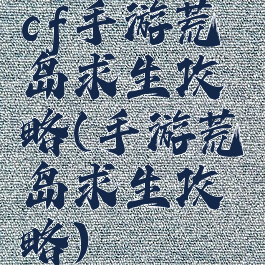 cf手游荒
岛求生攻
略(手游荒
岛求生攻
略)